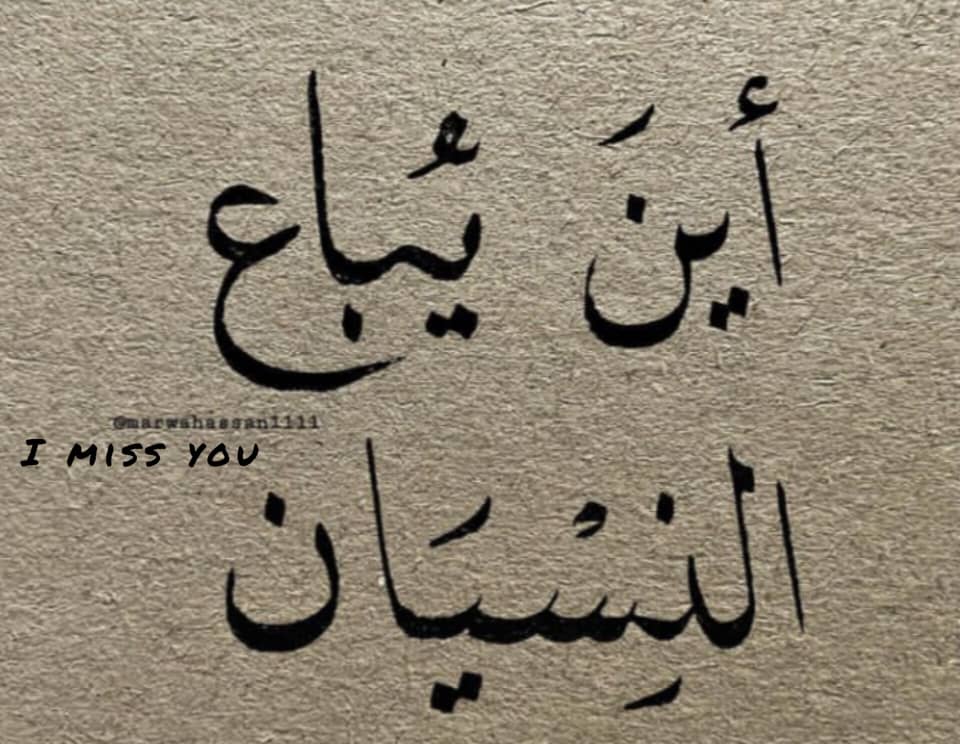 أينَ يُباع
@marwahassan1111
I MISS YOU
النِسْيَان